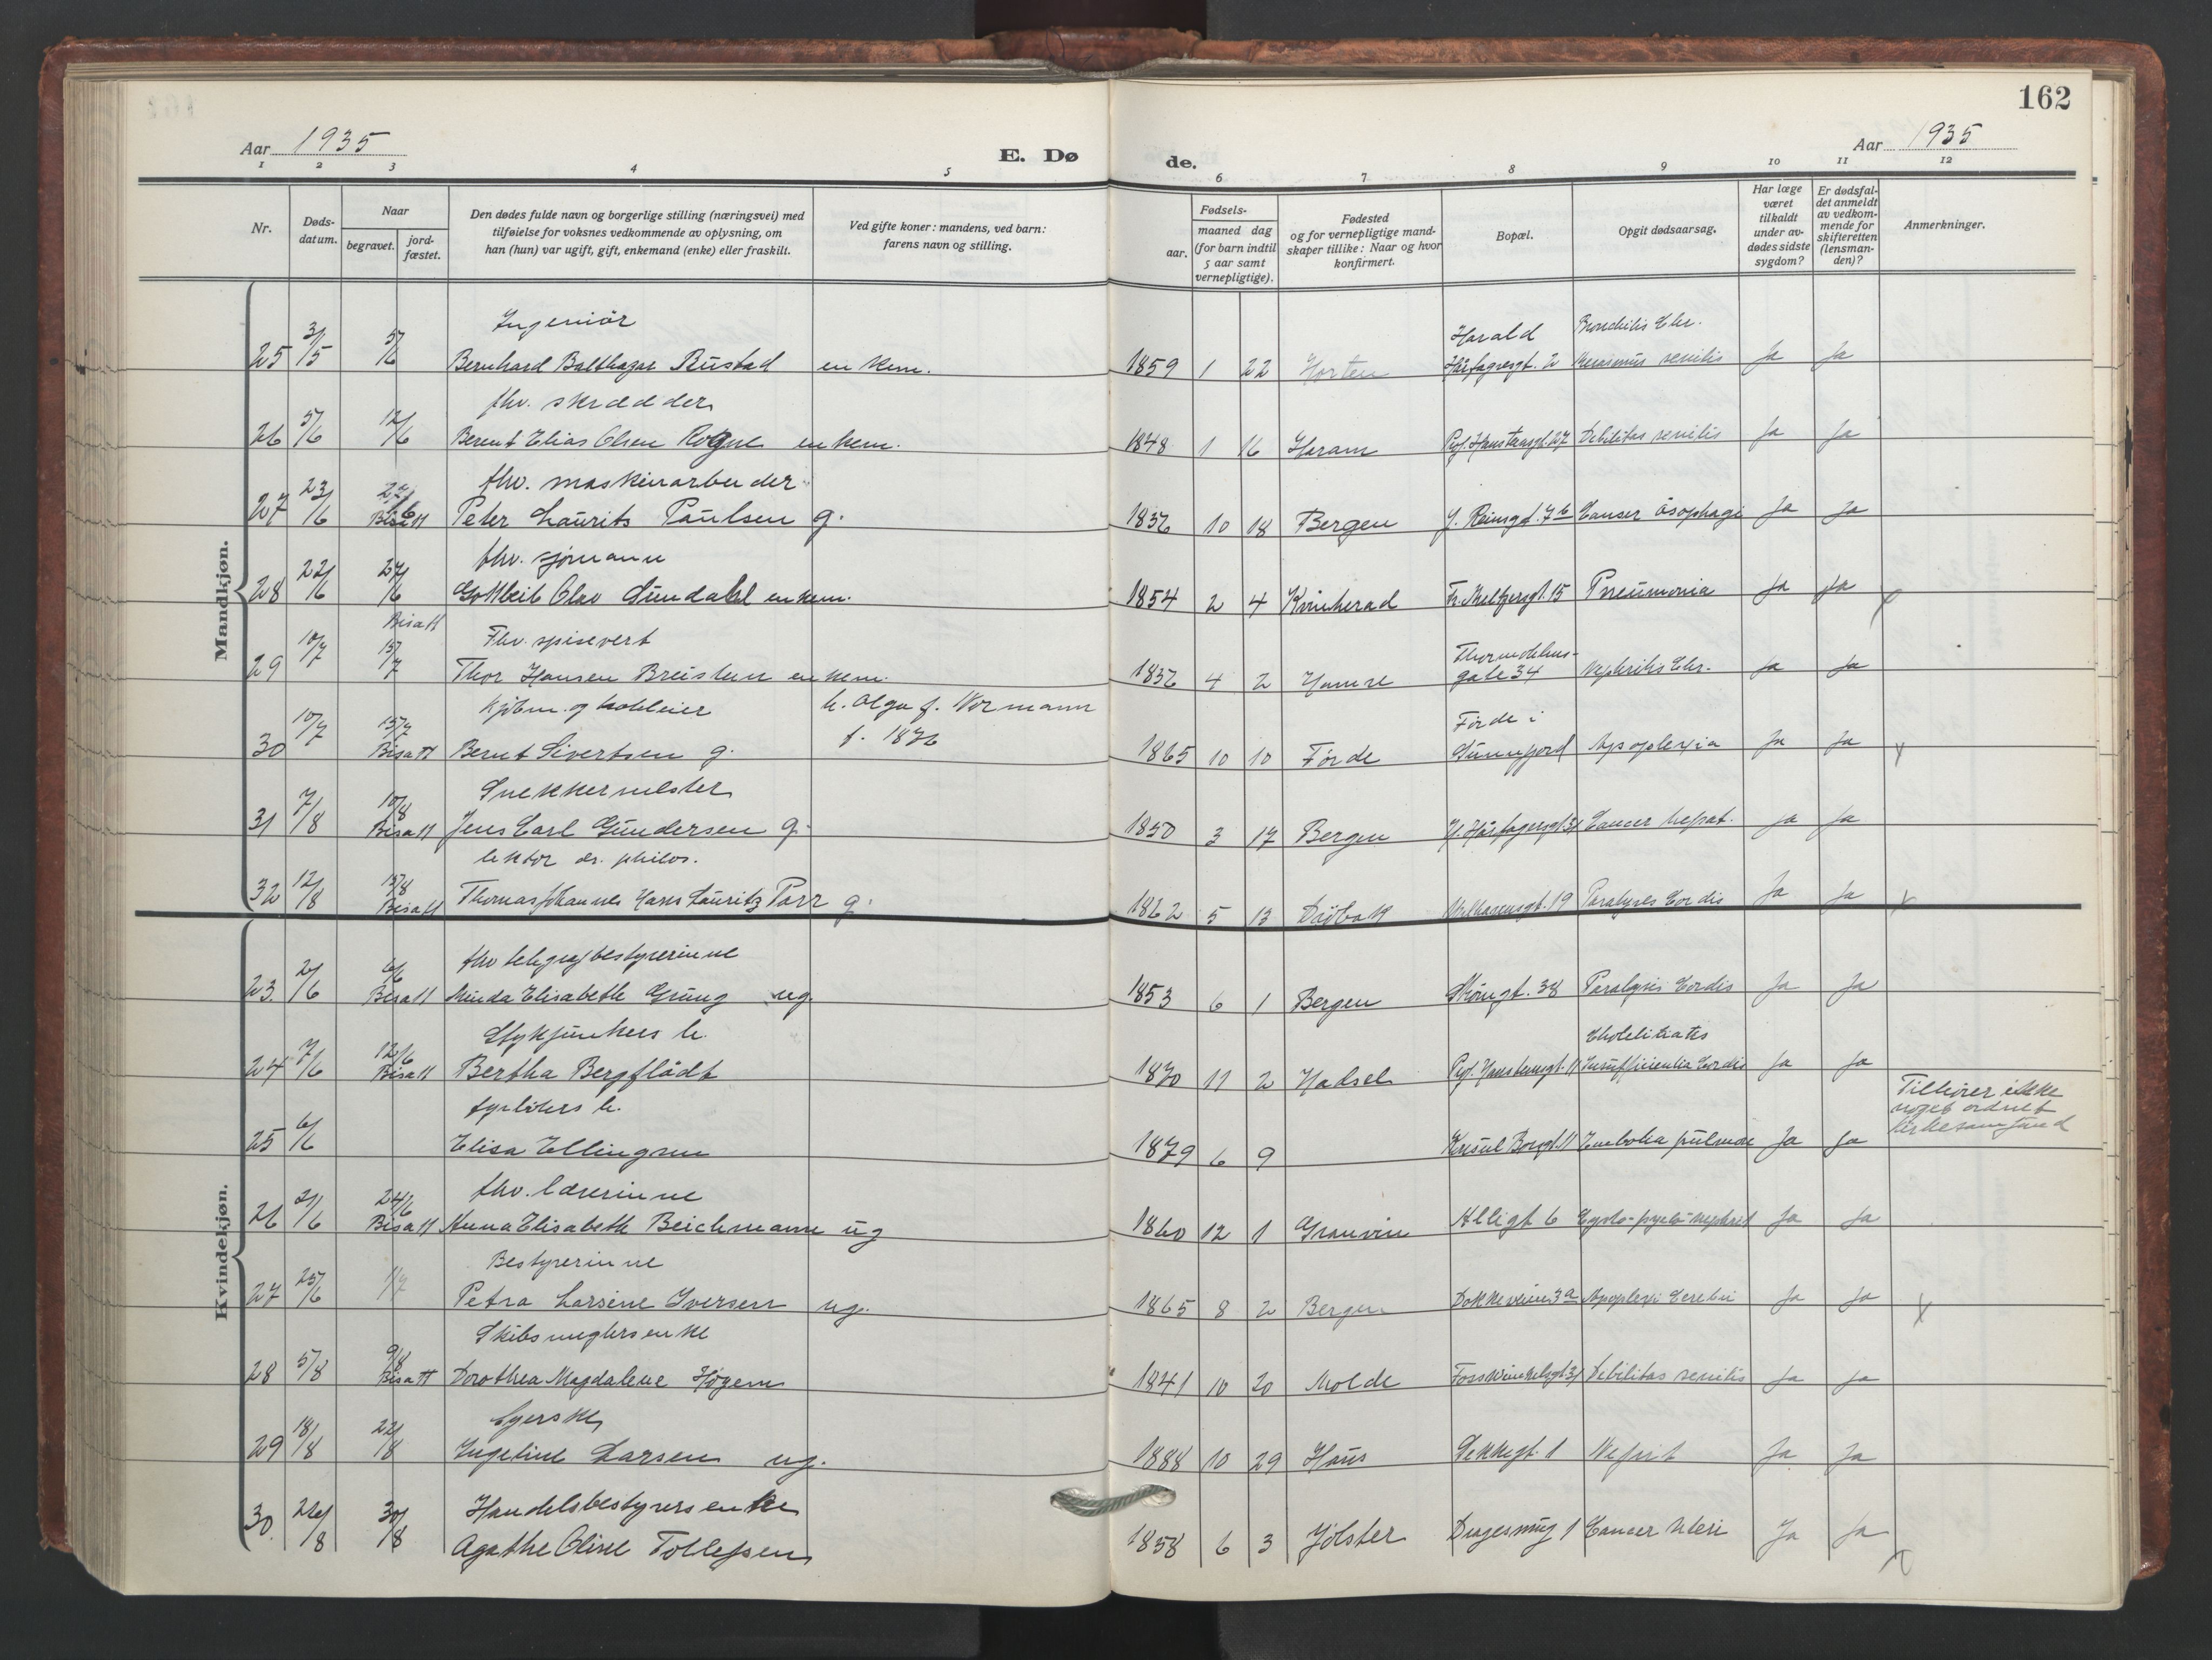 162
Aar 1935
E. Dø
de.
Aar 1935
1 2 3 4 5 6 7 8 9 10 11 12
Nr.
Døds-
datum.
Naar
begravet.
jord-
fæstet.
Den dødes fulde navn og borgerlige stilling (næringsvei) med
tilføielse for voksnes vedkommende av oplysning, om
han (hun) var ugift, gift, enkemand (enke) eller fraskilt.
Ved gifte koner: mandens, ved barn:
farens navn og stilling.
Fødsels-
aar.
maaned dag
(for barn indtil
5 aar samt
vernepligtige).
Fødested
og for vernepligtige mand-
skaper tillike: Naar og hvor
konfirmert.
Bopæl.
Opgit dødsaarsag.
Har læge
været
tilkaldt
under av-
dødes sidste
sygdom?
Er dødsfal-
det anmeldt
av vedkom-
mende for
skifteretten
(lensman-
den)?
Anmerkninger.
Mandkjøn.
Ingeniör Harald Bronchitis Chr.
25 31/5 5/6 Bernhard Balthazar Rustad enkem. 1859 1 22 Horten Hårfagresgt. 2 senilis Ja Ja
fhv. skredder
26 5/6 12/6 Berent Elias Olsen Rogne enkem. 1848 1 16 Haram Prof. Hansteensgt. 27 Debilitas senilis Ja Ja
fhv. maskinarbeider
27 23/6 Bisatt Peter Laurits Paulsen g. 10 18 Bergen Cancer ösophagi Ja Ja
fhv. sjömann
28 22/6 27/6 Gottleib Olav Sundahl enkem. 1854 2 4 Kvinherad Fr. Meltzersgt. 15 Pneumonia Ja Ja
Bisatt Fhv. spisevert Thormöhlens-
29 10/7 15/7 Thor Hansen Breistein enkem. 4 2 Hamre gate 34 Nephritis Chr. Ja Ja
Kjöbm. og h. Olga f. Wormann Förde i
30 10/7 15/7 Bisatt Bernt Sivertsen g. f. 1876 1865 10 10 Förde Sunnfjord Apoplexia Ja Ja
Snekkermester
31 7/8 10/8 Bisatt Jens Carl Gundersen g. 1850 3 17 Bergen H. Hårfagersgt 31 Cancer hepat. Ja Ja
lektor dr. philos.
32 12/8 15/8 Bisatt Thomas Johannes Lauritz Parr g. 1862 5 13 Dröbak Welhavensgt. 19 Paralyses Cordis Ja Ja
Kvindekjøn.
fhv telegrafbestyrerinne
23. 2/6 6/6 Bisatt Minda Elisabeth Grung ug. 1853 6 1 Bergen Strömgt. 38 Paralysis Cordis Ja Ja
Stykjunkers h.
24 7/6 12/6 Bisatt Bertha Bergflödt 1870 11 2 Hadsel Prof. Hansteensgt. 11 Insufficientia Cordis Ja Ja
fyrböters h. Tilhörer ikke
noget ordnet
kirkesamfund
25 6/6 Elisa Ellingsen 1879 6 9 Konsul Börsgt. 11 Embolia pulmon Ja Ja
fhv. lærerinne
26 21/6 24/6 Bisatt Anna Elisabeth Beichmann ug 1860 12 1 Granvin Alligt 6 Cysto-pyelo-nephrit Ja Ja
Bestyrerinne
27 25/6 1/7 Petra Larsine Iversen ug. 1865 8 2 Bergen Dokkeveien 3a Apoplexi Cerebri Ja Ja
Skibsmeglers enke
28 5/8 9/8 Bisatt Dorothea Magdalene 1841 10 20 Molde Fosswinckelsgt 31 Debilitas senilis Ja Ja
Syerske
29 18/8 22/8 Ingeline Larsen ug. 1888 10 29 Haus Sekkegt. 1 Nefrit Ja Ja
Handelsbestyrers enke
30. 26/8 30/8 Agathe Oline Tollefsen 1858 6 3 Jölster Dragesmug 1 Cancer Uteri Ja Ja